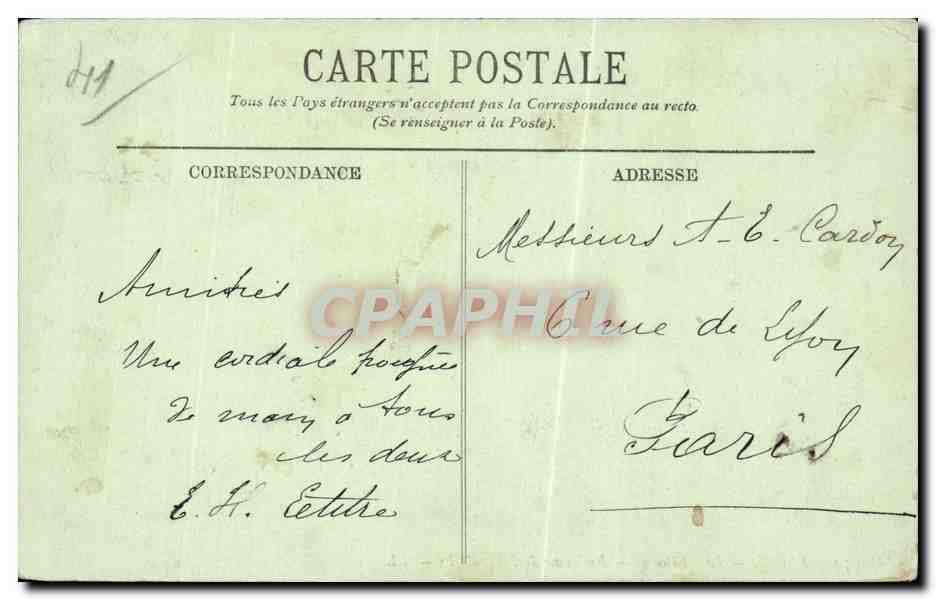 41
CARTE POSTALE
Tous les Pays étrangers n'acceptent pas la Correspondance au recto.
(Se renseigner à la Poste).
CORRESPONDANCE
ADRESSE
Amitiés
Une cordiale poignée
de main à tous
les deux
E. H.
Messieurs A-E. Cardon
6 rue de Lyon
Paris
CPAPHIL